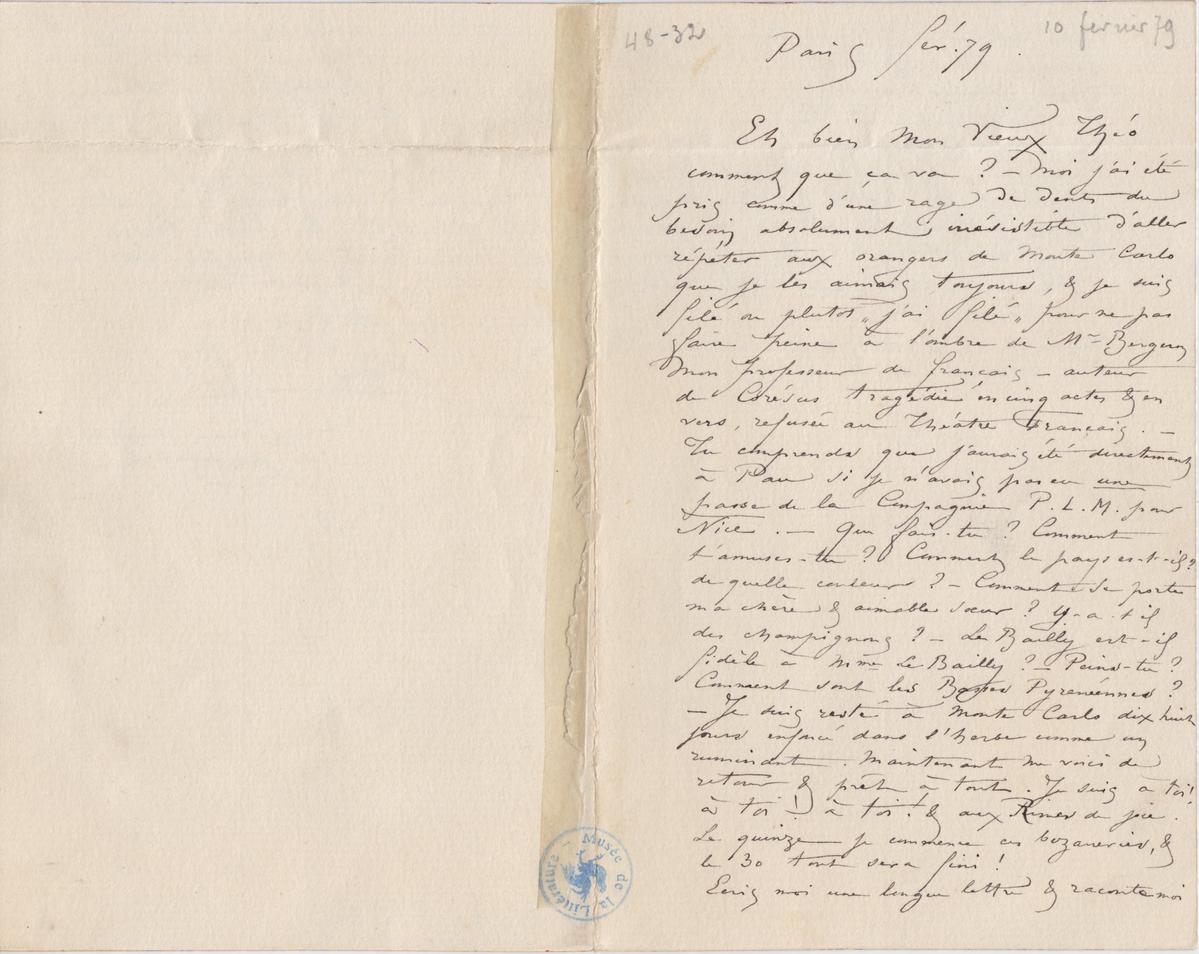 48-32
10 février 79
Paris fév. 79.
Eh bien Mon Vieux Théo
comment que ça va ? – Moi j'ai été
pris comme d'une rage de dents du
besoin absolument irrésistible d'aller
répéter aux orangers de Monte Carlo
que je les aimais toujours, & je suis
filé ou plutot „ j'ai filé „ pour ne pas
faire peine à l'ombre de Mr Bergeron
mon professeur de français – auteur
de Corésus tragédie en cinq actes & en
vers, refusée au Théatre Français. –
Tu comprends que j'aurais été directement
à Pau si je n'avais pas eu une
passe de la Compagnie P. L. M. pour
Nice. – Que fais-tu ? Comment
t'amuses-tu ? Comment le pays es-t-il ?
de quelle couleur ? – Comment se porte
ma chère & aimable sœur ? y-a-t il
des champignons ? – Le Bailly est-il
fidèle à Mme Le Bailly ? – Peins-tu ?
Comment sont les Basses Pyrenéennes ?
– Je suis resté à Monte Carlo dix huit
jours enfoncé dans l'herbe comme un
ruminant. Maintenant me voici de
retour & prêt à tout. Je suis à toi !
à toi ! à toi ! & aux Rimes de joie.
Le quinze je commence ces bozaneries, &
le 30 tout sera fini !
Ecris moi une longue lettre & raconte moi
Musée de la Littérature